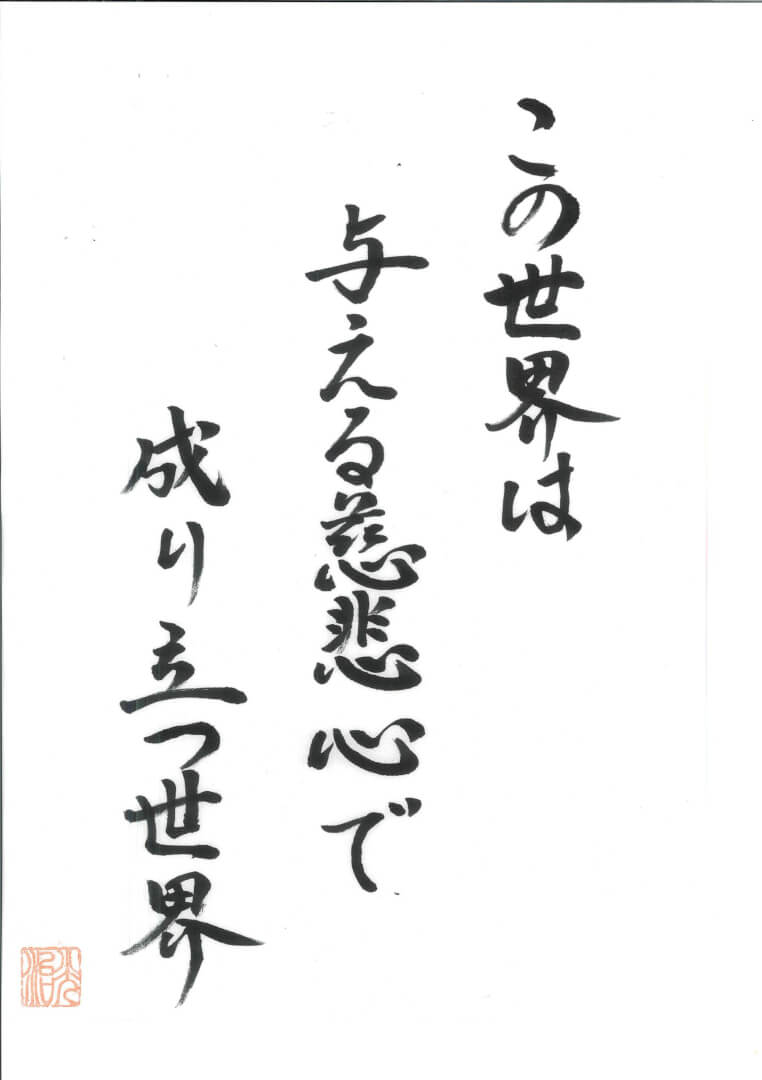 この世界は
与える慈悲心で
成り立つ世界